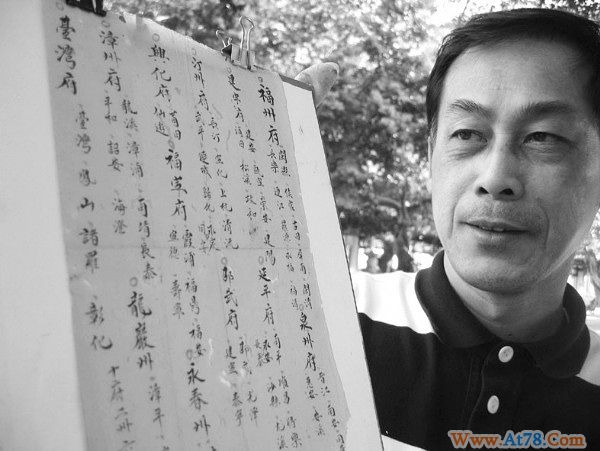 福州府 閩縣 侯官 古田 屏南 閩清
長樂 連江 羅源 永福 福清
泉州府 晉江 南安
惠安 安溪
建寧府 建安 甌寧 崇安 建陽
松溪 政和
延平府 南平 順昌 將樂
永安 沙縣 尤溪
汀州府 長汀 寧化 上杭 清流
武平 連城 歸化 永定
邵武府 邵武 光澤
建寧 泰寧
興化府 莆田 仙遊
福寧府 霞浦 福鼎 福安
寧德 壽寧
永春州
漳州府 龍溪 漳浦 南靖 長泰
平和 詔安 海澄
龍巖州 漳平
臺灣府 臺灣 鳳山 諸羅 彰化 十府二州
Www.At78.Com